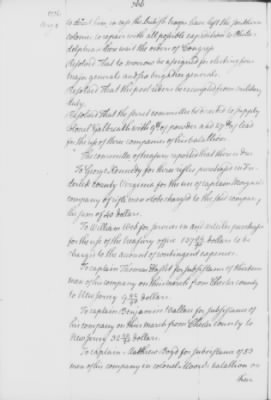 266
1776
to direct him in case the British troops have left the southern
colonies to repair with all possible expedition to Phila-
delphia & here wait the orders of Congress
Resolved That to morrow be assigned for electing four
major generals and six brigadier generals.
Resolved That the post riders be exempted from military
duty.
Resolved That the secret committee be directed to supply
Colonel Galbreath with of powder and of lead
for the use of three companies of his battalion.
The committee of treasury reported that there is due
To George Kennedy for three rifles purchased in Fre-
derick county Virginia for the use of captain Morgan's
company of riflemen & to be charged to the said company,
the sum of 40 dollars.
To William Webb for sundries purchases
for the use of the treasury office 107 dollars to be
charged to the account of contingent expences.
To captain Thomas for subsistence of thirteen
men of his company on their march from Chester county
to New Jersey 9 dollars.
To captain Benjamin Wallace for subsistence of
his company on their march from Chester county to
New Jersey 32 dollars.
To captain Matthew Boyd for subsistence of 53
men of his company in colonel Moore's battalion on
their